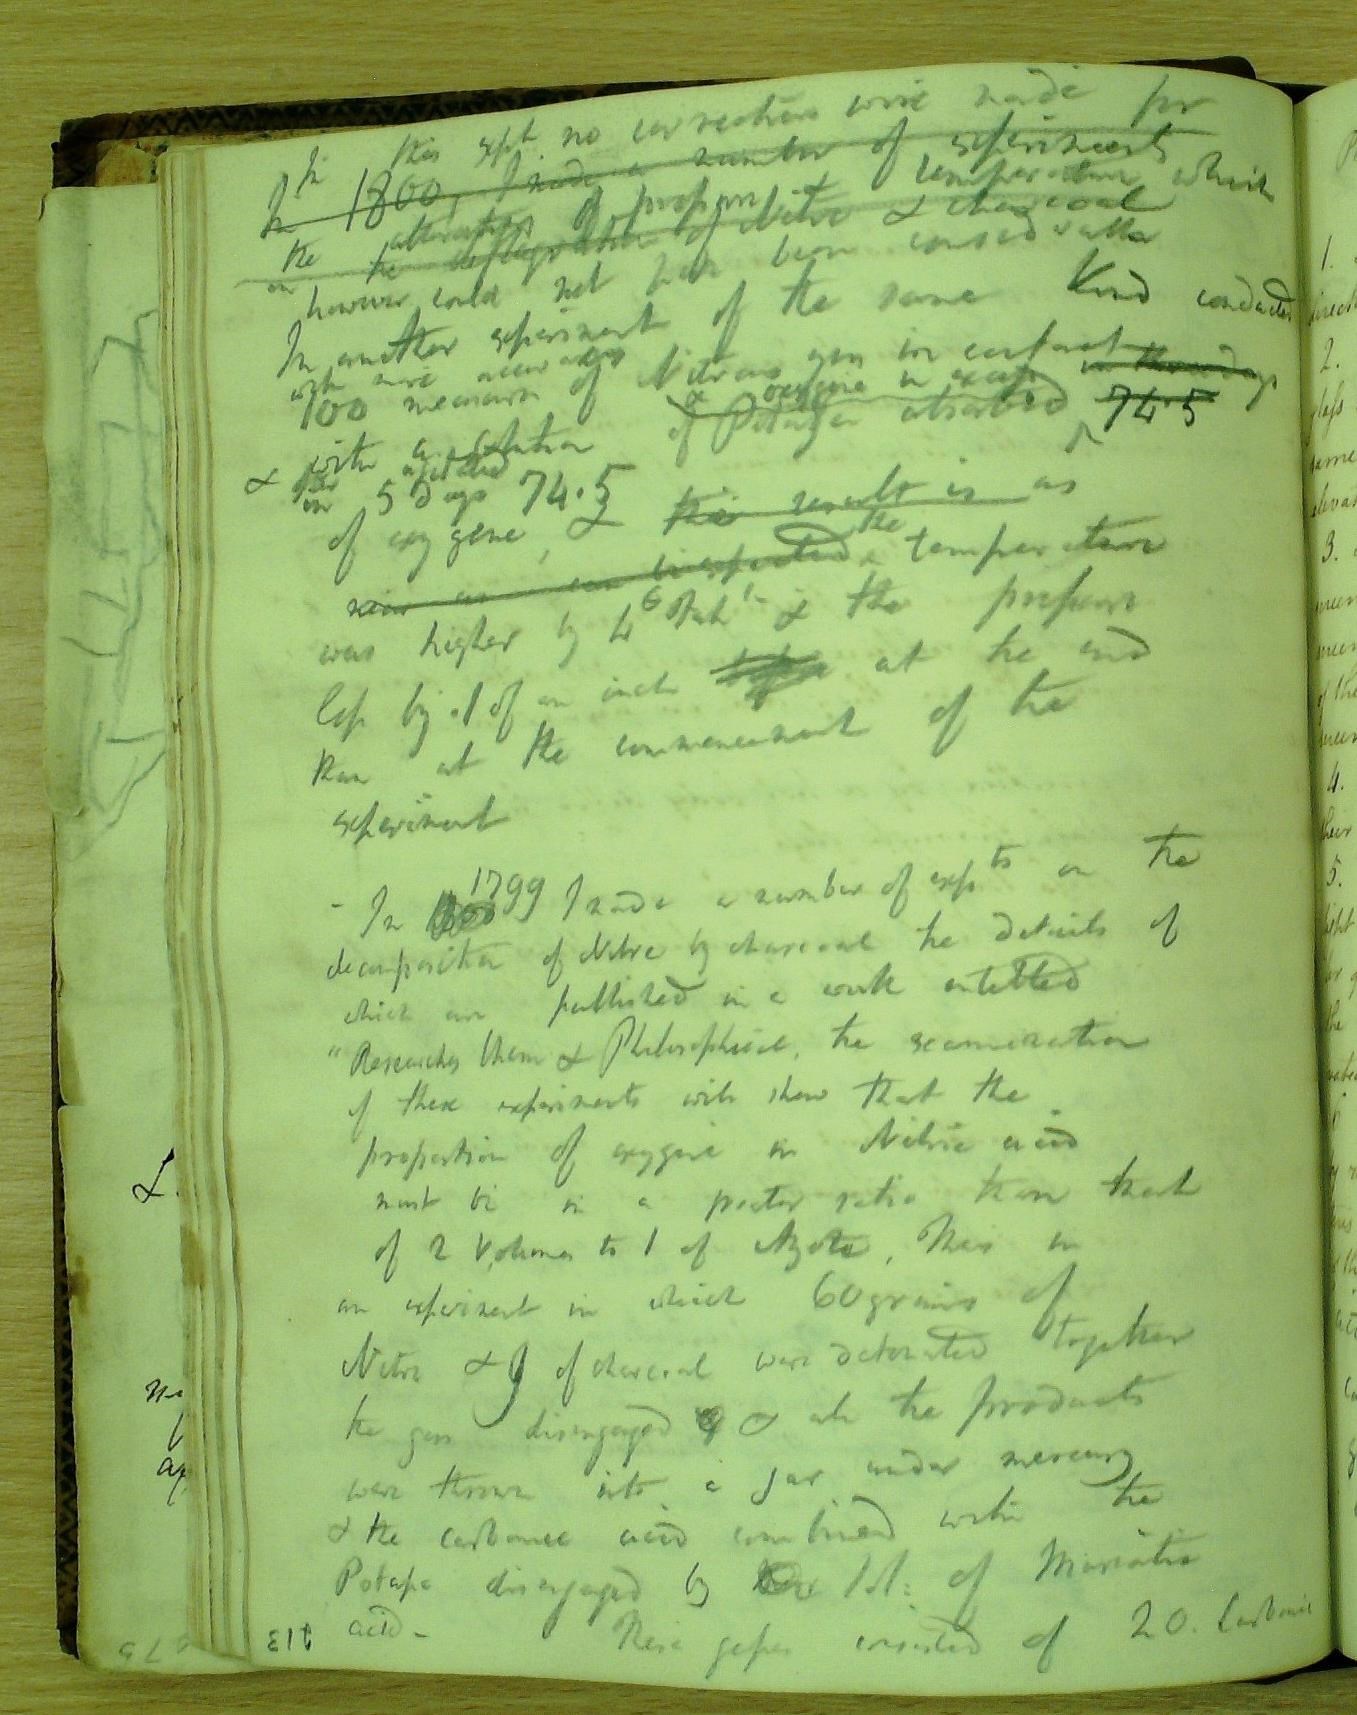 In this expt no corrections were made for
In 1800, I made a number of experiments
the alteration of pressure & temperature which
on the deflagration of Nitre & charcoal
however could not have been considerable
In another experiment of the same Kind conducted
with more accuracy
100 measures of Nitrous gas in contact in three days
& oxygene in excess
with a solution of Potassa absorbed 74.5
& in 5 days 74.5
of oxygene, & this result is as
near as can be expected, the temperature
was higher by 4° Fah & the pressure
less by .1 of an inch at the end
than at the commencement of the
experiment
- In 1799 I made a number of expts on the
decomposition of Nitre by charcoal the details of
which are published in a work entitled
"Researches Chem & Philosophical, the examination
of these experiments will shew that the
proportion of oxygene in Nitric acid
must be in a greater ratio than that
of 2 Volumes to 1 of Azote, Thus in
an experiment in which 60 grains of
Nitre & 9 of charcoal were detonated together
the gas disengaged & all the products
were thrown into a jar under mercury
& the carbonic acid combined with the
Potassa disengaged by Sol: of Muriatic
acid -
These gasses consisted of 20. Carbonic